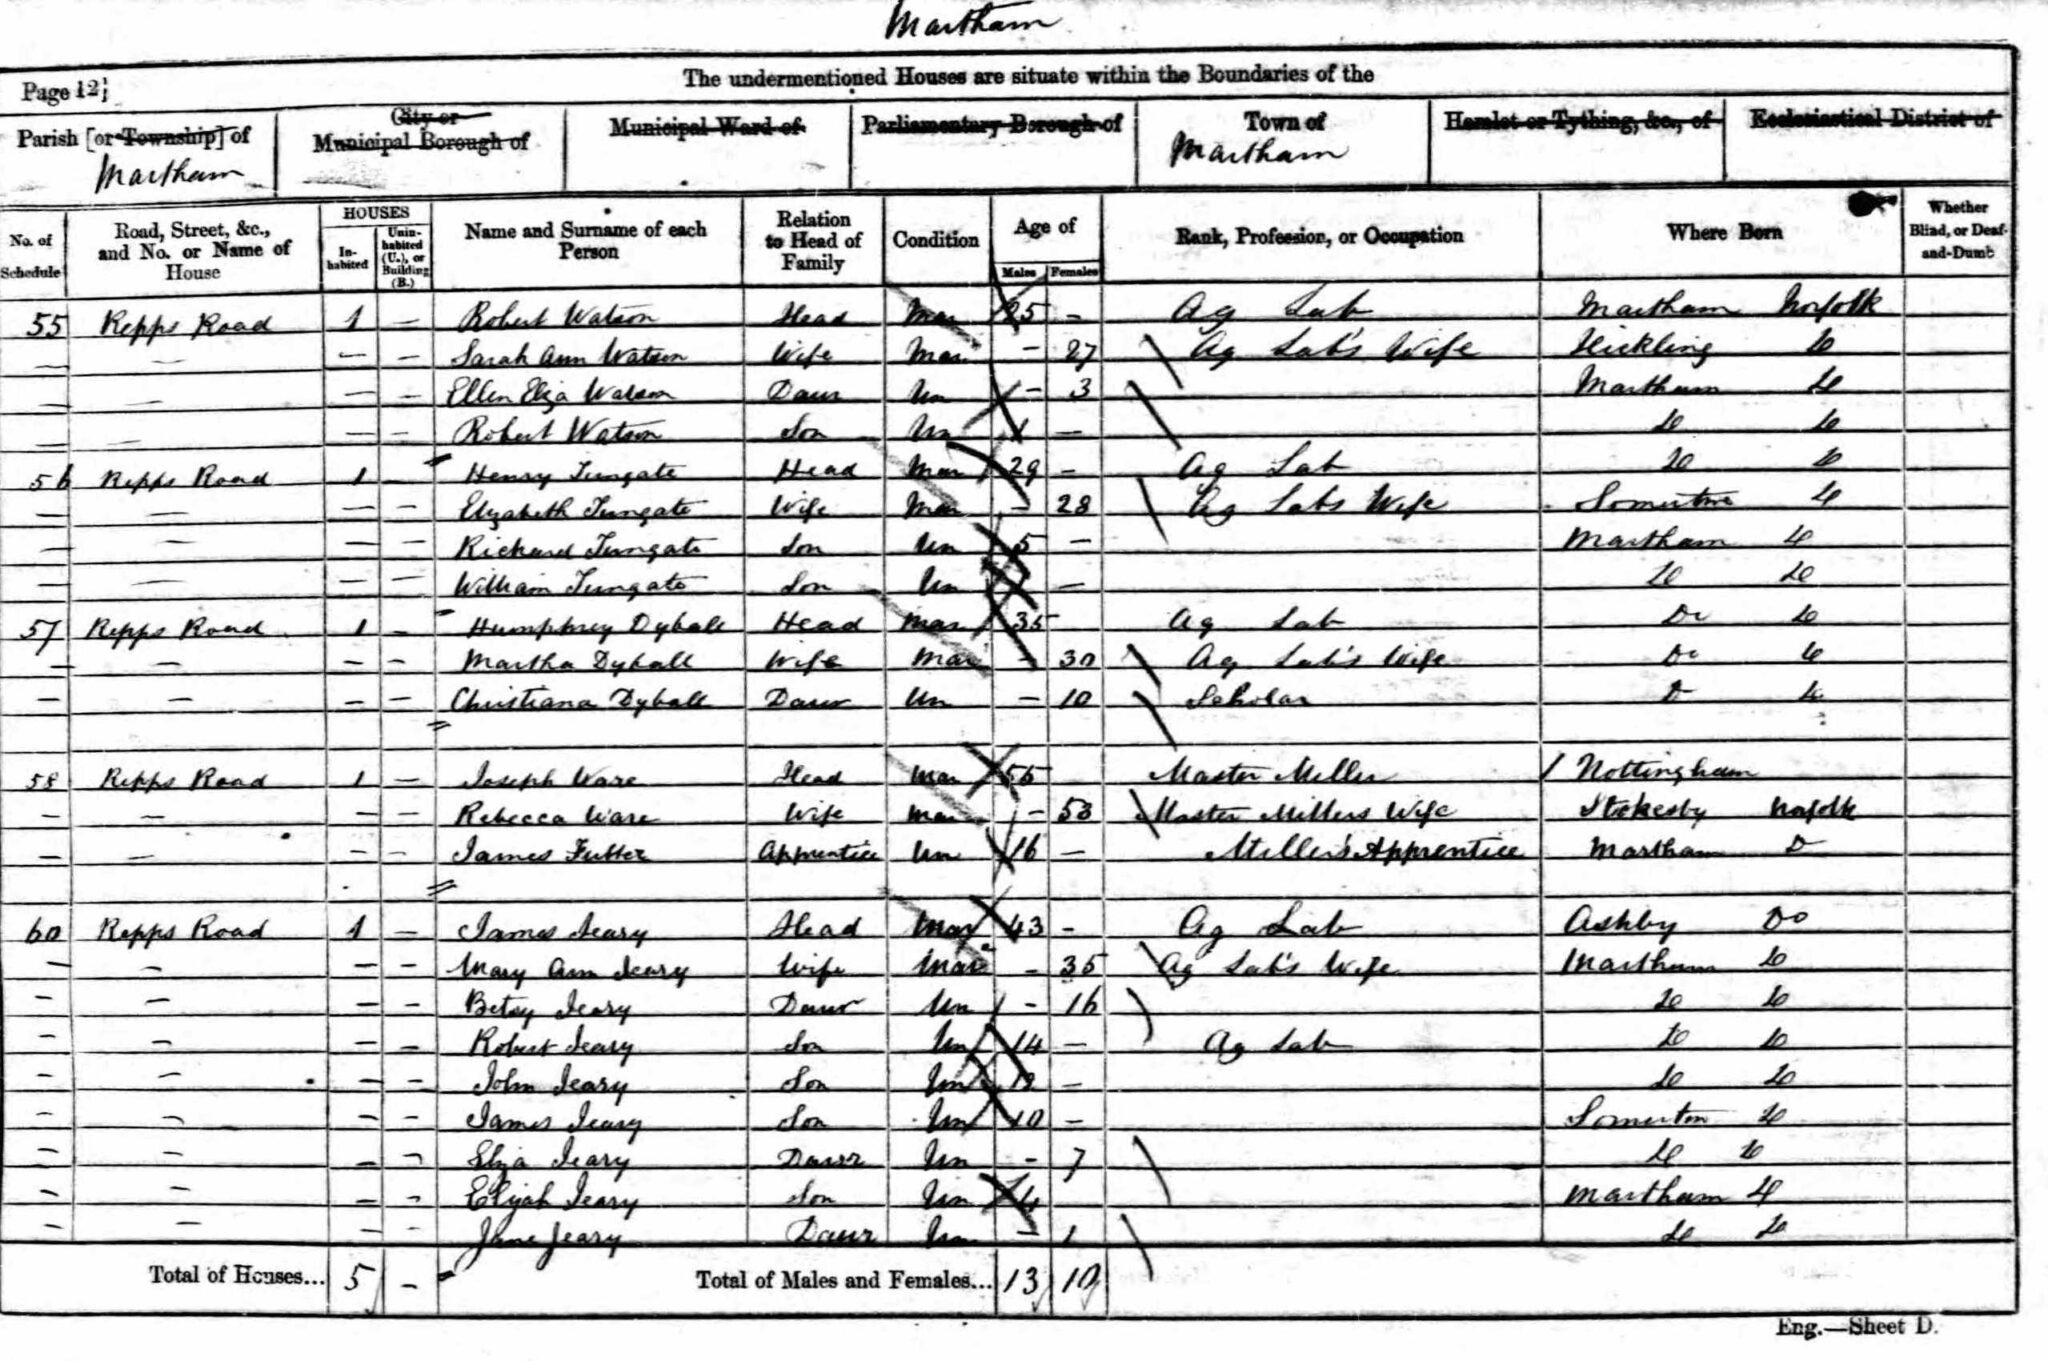 Martham
Page 12
The undermentioned Houses are situate within the Boundaries of the
Parish [or Township] of
Martham
City or
Municipal Borough of
Municipal Ward of
Parliamentary Borough of
Town of
Martham
Hamlet or Tything, &c., of
Ecclesiastical District of
No. of Schedule
Road, Street, &c., and No. or Name of House
HOUSES
In-habited
Unin-habited (U.), or Building (B.)
Name and Surname of each Person
Relation to Head of Family
Condition
Age of
Males Females
Rank, Profession, or Occupation
Where Born
Whether Blind, or Deaf-and-Dumb
55 Repps Road 1 — Robert Watson Head Mar 25 – Ag Lab Martham Norfolk
— — — — Sarah Ann Watson Wife Mar – 27 Ag Lab's Wife Hickling Do
— — — — Ellen Eliza Watson Daur Un – 3 Martham Do
— — — — Robert Watson Son Un 1 — Do Do
56 Repps Road 1 — Henry Tungate Head Mar 29 – Ag Lab Do Do
— — — — Elizabeth Tungate Wife Mar – 28 Ag Labs Wife Somerton Do
— — — — Richard Tungate Son Un 5 – Martham Do
— — — — William Tungate Son Un — Do Do
57 Repps Road 1 — Humphrey Dyball Head Mar 35 Ag Lab Do Do
— — — — Martha Dyball Wife Mar – 30 Ag Lab's Wife Do Do
— — — — Christiana Dyball Daur Un – 10 Scholar Do Do
58 Repps Road 1 — Joseph Ware Head Mar 55 Master Miller Nottingham
— — — — Rebecca Ware Wife Mar – 58 Master Millers Wife Stokesby Norfolk
— — — — James Futter Apprentice Un 16 — Miller's Apprentice Martham Do
60 Repps Road 1 — James Jeary Head Mar 43 – Ag Lab Ashby Do
— — — — Mary Ann Jeary Wife Mar – 35 Ag Lab's Wife Martham Do
— — — — Betsy Jeary Daur Un – 16 Do Do
— — — — Robert Jeary Son Un 14 — Ag Lab Do Do
— — — — John Jeary Son Un 12 – Do Do
— — — — James Jeary Son Un 10 – Somerton Do
— — — — Eliza Jeary Daur Un – 7 Do Do
— — — — Elijah Jeary Son Un 4 Martham Do
— — — — Jane Jeary Daur Un – 1 Do Do
Total of Houses... 5 – Total of Males and Females... 13 10
Eng.—Sheet D.